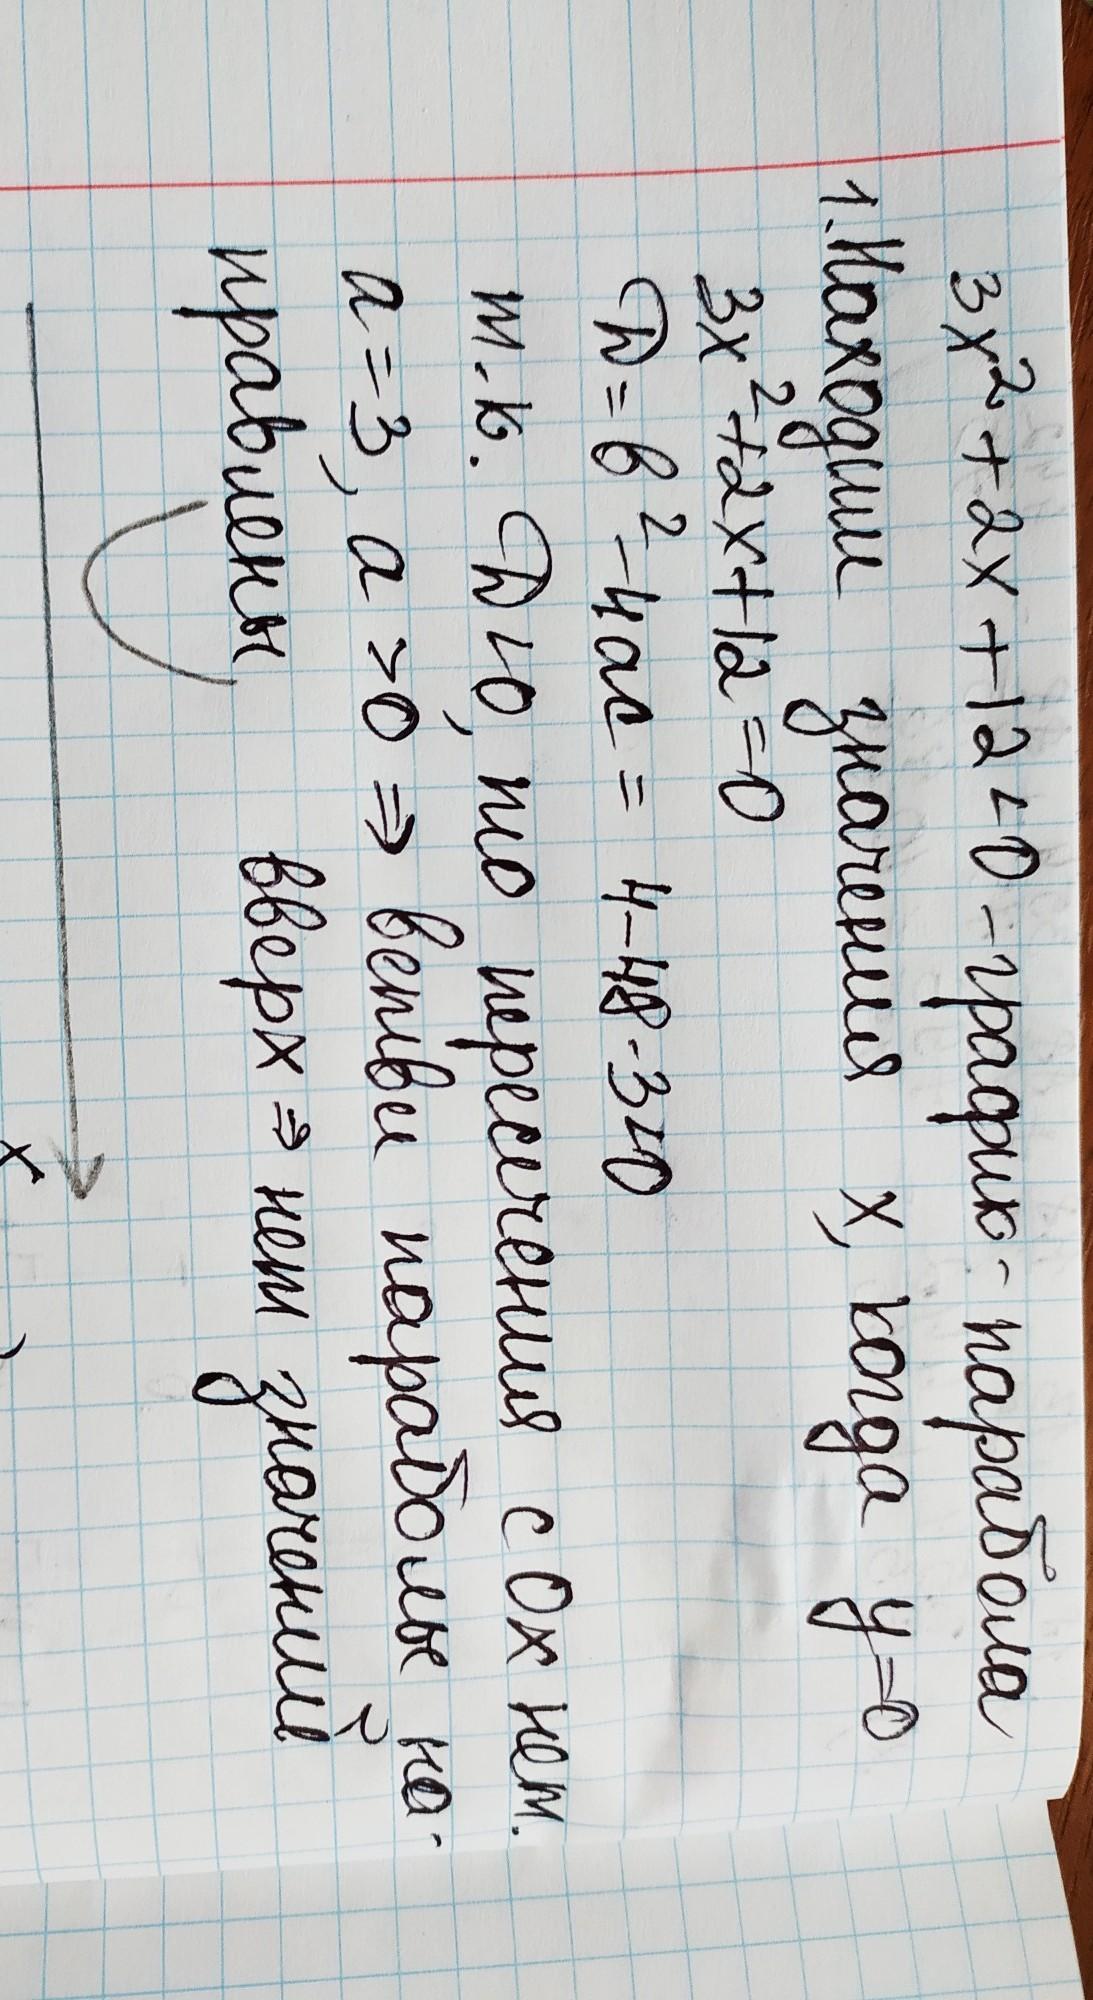 3x² + 2x + 12 < 0 - график - парабола
1. Находим значения x, когда y=0
3x² + 2x + 12 = 0
D = b² - 4ac = 4 - 48·3 < 0
т.к. D < 0, то пересечения с Ox нет.
a = 3, a > 0 ⇒ ветви параболы на-
правлены вверх ⇒ нет значений
x